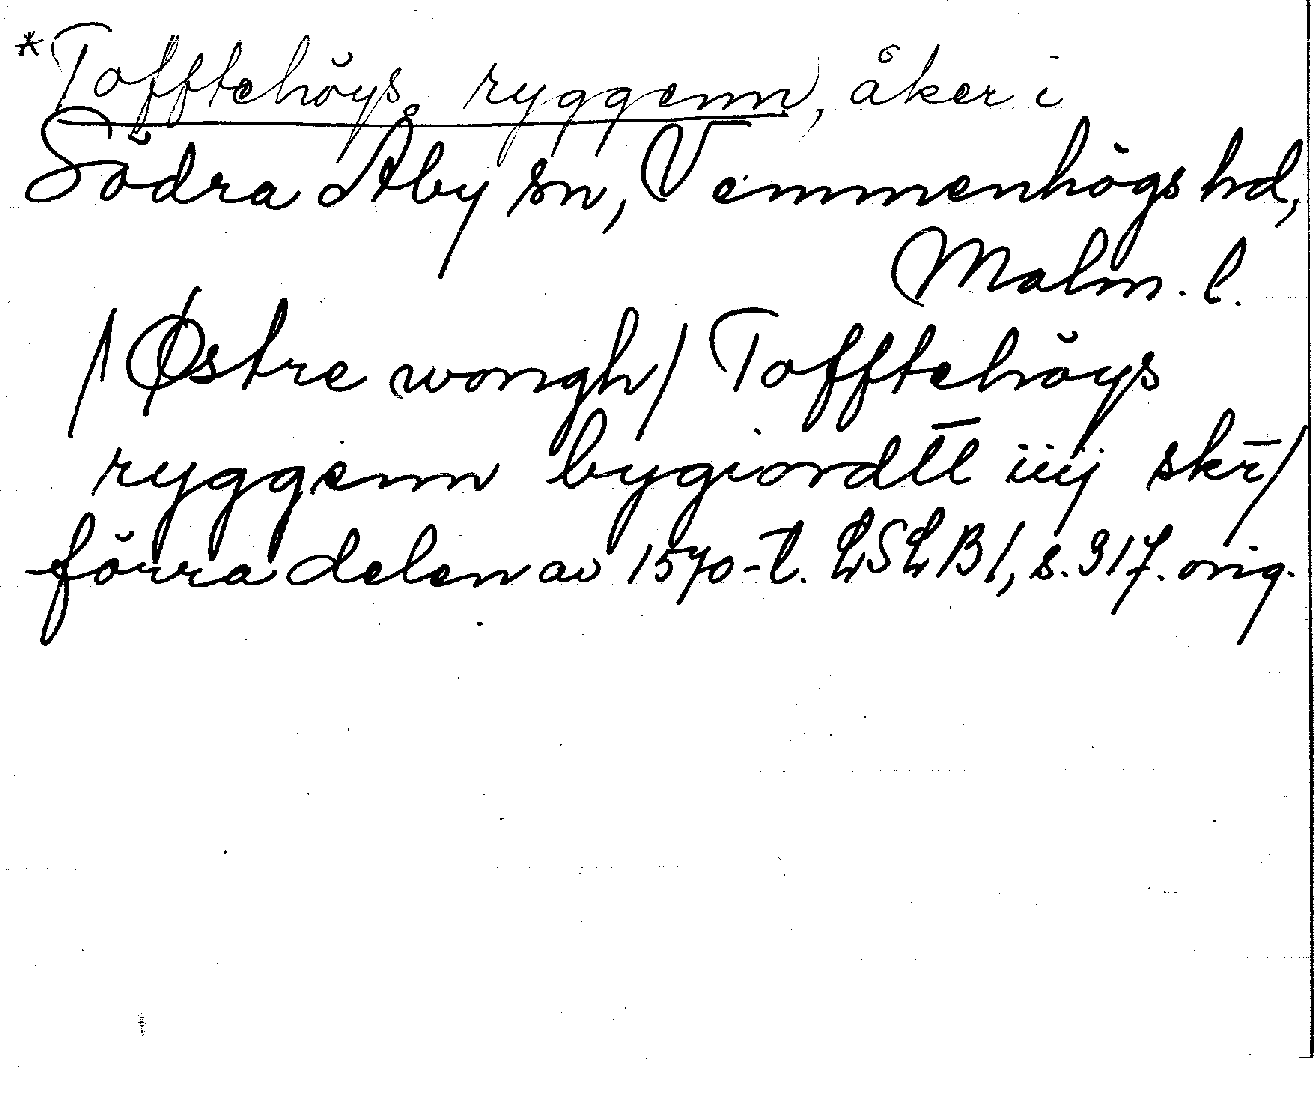 *Tofftehöys ryggenn, åker i
Södra Åby sn, Vemmenhögs hd,
Malm. l.
/Østre wongh/ Tofftehöys
ryggenn bygiordtt iiij skr̄/
förra delen av 1570-t. LSLB1, s. 317. orig.